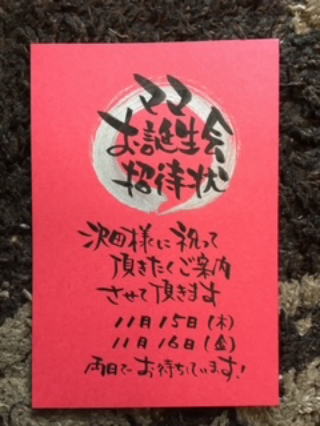 ママ
お誕生会
招待状
沢田様に祝って
頂きたくご案内
させて頂きます
11月15日(木)
11月16日(金)
両日でお待ちしています!